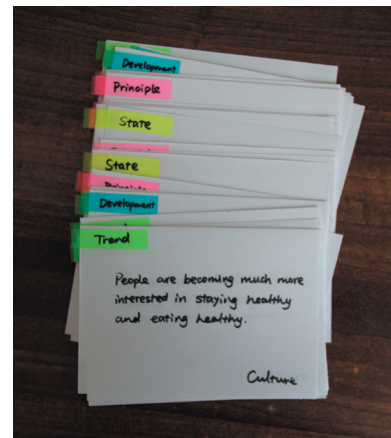 Development
Principle
State
State
Principle
Development
Trend
People are becoming much more
interested in staying healthy
and eating healthy.
Culture